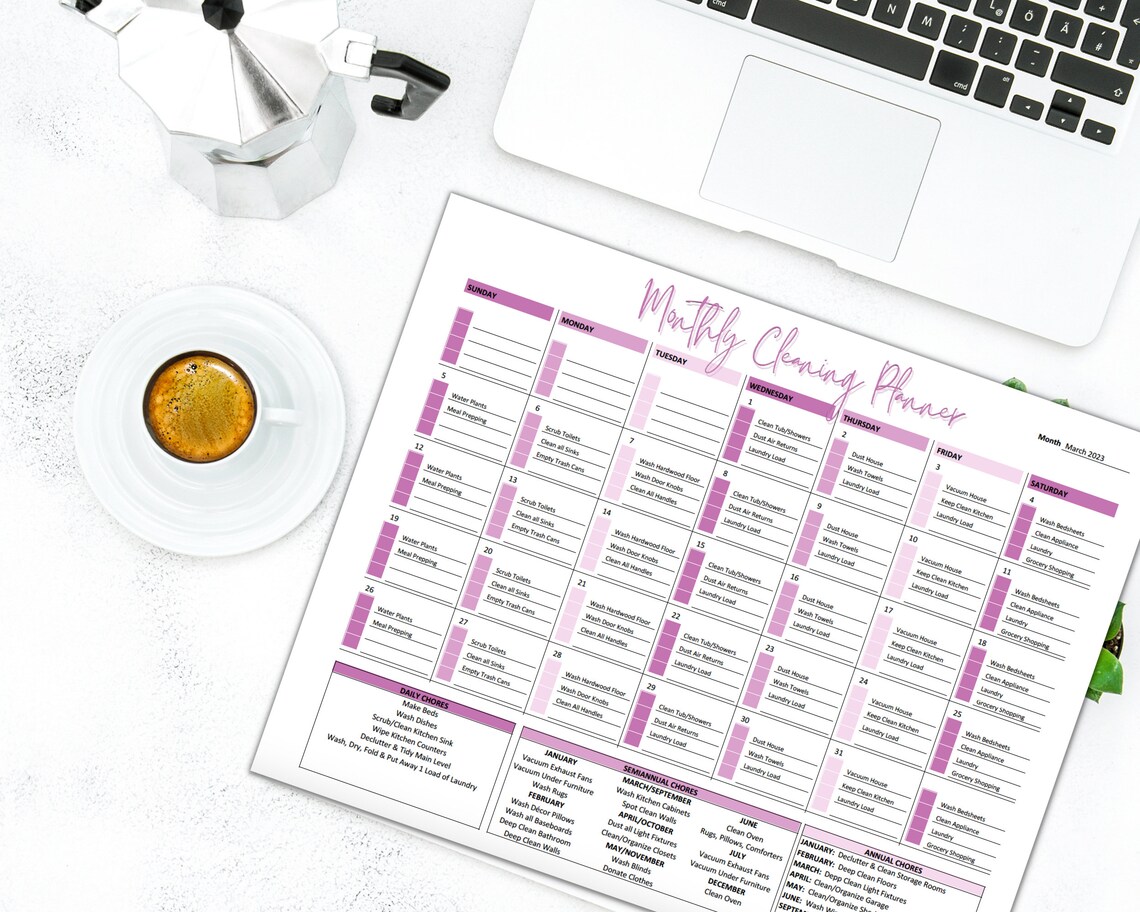 cmd
N
M
L @
Ö
Ä
#
cmd
alt
Monthly Cleaning Planner
Month March 2023
SUNDAY
MONDAY
TUESDAY
WEDNESDAY
THURSDAY
FRIDAY
SATURDAY
1
Clean Tub/Showers
Dust Air Returns
Laundry Load
2
Dust House
Wash Towels
Laundry Load
3
Vacuum House
Keep Clean Kitchen
Laundry Load
4
Wash Bedsheets
Clean Appliance
Laundry
Grocery Shopping
5
Water Plants
Meal Prepping
6
Scrub Toilets
Clean all Sinks
Empty Trash Cans
7
Wash Hardwood Floor
Wash Door Knobs
Clean All Handles
8
Clean Tub/Showers
Dust Air Returns
Laundry Load
9
Dust House
Wash Towels
Laundry Load
10
Vacuum House
Keep Clean Kitchen
Laundry Load
11
Wash Bedsheets
Clean Appliance
Laundry
Grocery Shopping
12
Water Plants
Meal Prepping
13
Scrub Toilets
Clean all Sinks
Empty Trash Cans
14
Wash Hardwood Floor
Wash Door Knobs
Clean All Handles
15
Clean Tub/Showers
Dust Air Returns
Laundry Load
16
Dust House
Wash Towels
Laundry Load
17
Vacuum House
Keep Clean Kitchen
Laundry Load
18
Wash Bedsheets
Clean Appliance
Laundry
Grocery Shopping
19
Water Plants
Meal Prepping
20
Scrub Toilets
Clean all Sinks
Empty Trash Cans
21
Wash Hardwood Floor
Wash Door Knobs
Clean All Handles
22
Clean Tub/Showers
Dust Air Returns
Laundry Load
23
Dust House
Wash Towels
Laundry Load
24
Vacuum House
Keep Clean Kitchen
Laundry Load
25
Wash Bedsheets
Clean Appliance
Laundry
Grocery Shopping
26
Water Plants
Meal Prepping
27
Scrub Toilets
Clean all Sinks
Empty Trash Cans
28
Wash Hardwood Floor
Wash Door Knobs
Clean All Handles
29
Clean Tub/Showers
Dust Air Returns
Laundry Load
30
Dust House
Wash Towels
Laundry Load
31
Vacuum House
Keep Clean Kitchen
Laundry Load
Wash Bedsheets
Clean Appliance
Laundry
Grocery Shopping
DAILY CHORES
Make Beds
Wash Dishes
Scrub/Clean Kitchen Sink
Wipe Kitchen Counters
Declutter & Tidy Main Level
Wash, Dry, Fold & Put Away 1 Load of Laundry
SEMIANNUAL CHORES
JANUARY
Vacuum Exhaust Fans
Vacuum Under Furniture
Wash Rugs
FEBRUARY
Wash Décor Pillows
Wash all Baseboards
Deep Clean Bathroom
Deep Clean Walls
MARCH/SEPTEMBER
Wash Kitchen Cabinets
Spot Clean Walls
APRIL/OCTOBER
Dust all Light Fixtures
Clean/Organize Closets
MAY/NOVEMBER
Wash Blinds
Donate Clothes
JUNE
Clean Oven
Rugs, Pillows, Comforters
JULY
Vacuum Exhaust Fans
Vacuum Under Furniture
DECEMBER
Clean Oven
ANNUAL CHORES
JANUARY: Declutter & Clean Storage Rooms
FEBRUARY: Deep Clean Floors
MARCH: Deep Clean Light Fixtures
APRIL: Clean/Organize Garage
MAY: Clean/Organize
JUNE: Wash